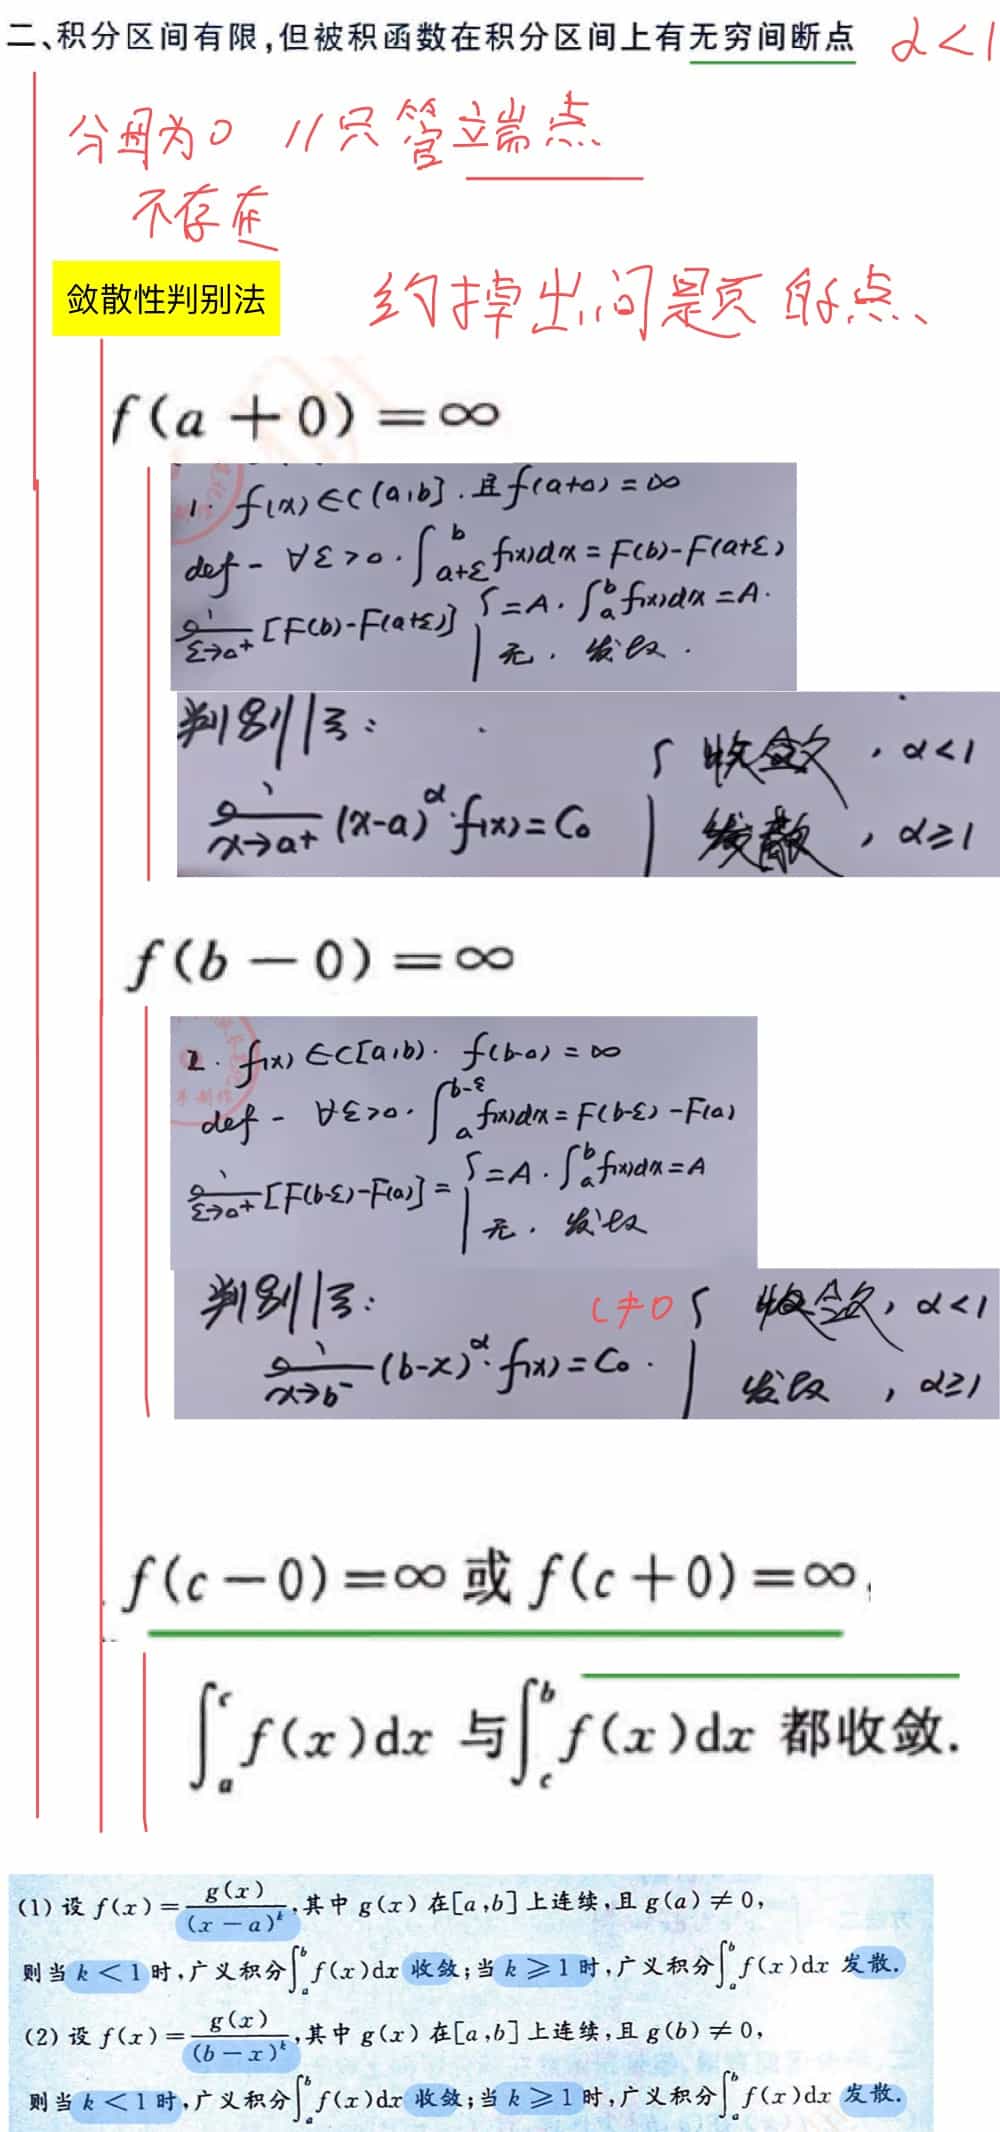 二、积分区间有限,但被积函数在积分区间上有无穷间断点 α<1
分母为0 //只管立端点
不存在
敛散性判别法 约掉出问题的点、
f(a+0)=∞
1. f(x)∈C(a,b]. 且f(a+0)=∞
def- ∀ε>0. ∫_{a+ε}^{b} f(x)dx=F(b)-F(a+ε)
lim_{ε→0+} [F(b)-F(a+ε)] { =A. ∫_a^b f(x)dx=A.
无. 发散.
判别法:
lim_{x→a+} (x-a)^α·f(x)=C₀ { 收敛, α<1
发散, α≥1
f(b-0)=∞
2. f(x)∈C[a,b). f(b-0)=∞
def- ∀ε>0. ∫_a^{b-ε} f(x)dx=F(b-ε)-F(a)
lim_{ε→0+} [F(b-ε)-F(a)]= { =A. ∫_a^b f(x)dx=A
无. 发散
判别法: C≠0 { 收敛, α<1
lim_{x→b-} (b-x)^α·f(x)=C₀. 发散, α≥1
f(c-0)=∞或f(c+0)=∞,
∫_a^c f(x)dx 与∫_c^b f(x)dx 都收敛.
(1)设f(x)=g(x)/(x-a)^k,其中g(x)在[a,b]上连续,且g(a)≠0,
则当k<1时,广义积分∫_a^b f(x)dx收敛;当k≥1时,广义积分∫_a^b f(x)dx发散.
(2)设f(x)=g(x)/(b-x)^k,其中g(x)在[a,b]上连续,且g(b)≠0,
则当k<1时,广义积分∫_a^b f(x)dx收敛;当k≥1时,广义积分∫_a^b f(x)dx发散.